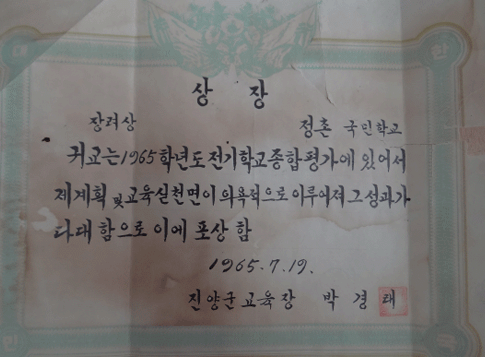 대
한
상 장
장려상
정촌 국민학교
귀교는 1965학년도 전기학교종합평가에 있어서
제계획 및 교육실천면이 의욕적으로 이루어져 그 성과가
다대 함으로 이에 포상 함
1965.7.19.
진양군 교육장 박 경 태
민
국